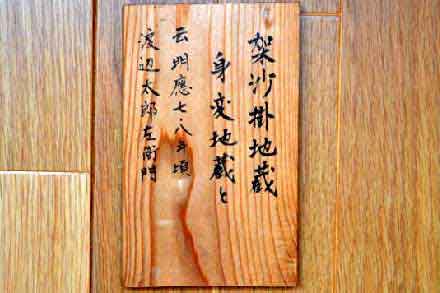 袈沙掛地蔵
身変地蔵と
云明應七八年頃
渡辺太郎左衛門